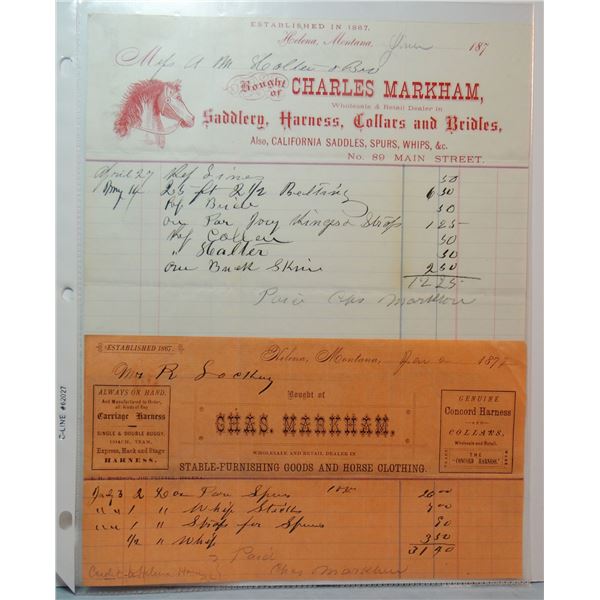 ESTABLISHED IN 1867.
Helena, Montana, June 187
A M Holter & Bro
Bought of CHARLES MARKHAM,
Wholesale & Retail Dealer in
Saddlery, Harness, Collars and Bridles,
Also, CALIFORNIA SADDLES, SPURS, WHIPS, &c.
No. 89 MAIN STREET.
April 27 Rep Lines 50
May 14 23 ft 2 1/2 Belting 6 50
Rep Bridle 50
one Par Joey Hinges & Straps 1 25
Rep Collar 50
" Halter 50
one Buck Skin 2 50
12 25
Paid Chas Markham
C-LINE #62027
ESTABLISHED 1867.
Helena, Montana, Jan 187
Mr R Lockey
Bought of
CHAS. MARKHAM,
WHOLESALE AND RETAIL DEALER IN
STABLE-FURNISHING GOODS AND HORSE CLOTHING.
ALWAYS ON HAND,
And Manufactured to Order,
all kinds of
Carriage Harness
SINGLE & DOUBLE BUGGY,
COACH, TEAM,
Express, Hack and Stage
HARNESS.
GENUINE
Concord Harness
AND
COLLARS,
Wholesale and Retail.
TRADE THE "CONCORD HARNESS." MARK
3 2 Doz Pair Spurs 20 00
" " 1 " Whip Sticks
" " 1 " Straps for Spurs
1/2 " Whip 3 50
Paid
Chas Markham
Credit Helena